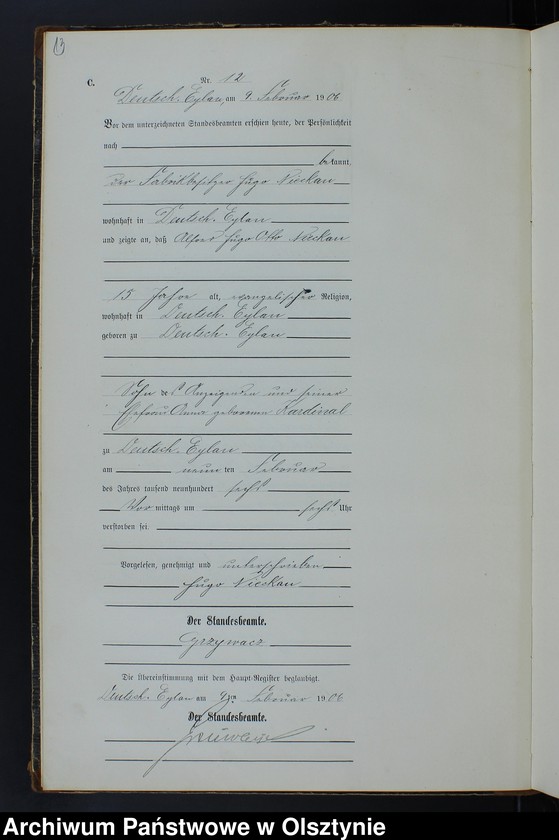 13
C.
Nr. 12
Deutsch. Eylau, am 9. Februar 1906
Vor dem unterzeichneten Standesbeamten erschien heute, der Persönlichkeit
nach
bekannt,
der Fabrikbesitzer Hugo Nickau
wohnhaft in Deutsch. Eylau
und zeigte an, daß Alfred Hugo Otto Nickau
15 Jahre alt, evangelischer Religion,
wohnhaft in Deutsch. Eylau
geboren zu Deutsch. Eylau
Sohn des Anzeigenden und seiner
Ehefrau Anna geborenen Kardinal
zu Deutsch. Eylau
am neun ten Februar
des Jahres tausend neunhundert sechs
Vor mittags um sechs Uhr
verstorben sei.
Vorgelesen, genehmigt und unterschrieben
Hugo Nickau
Der Standesbeamte.
Grzywacz
Die Übereinstimmung mit dem Haupt-Register beglaubigt.
Deutsch. Eylau am 9ten Februar 1906
Der Standesbeamte.
Archiwum Państwowe w Olsztynie